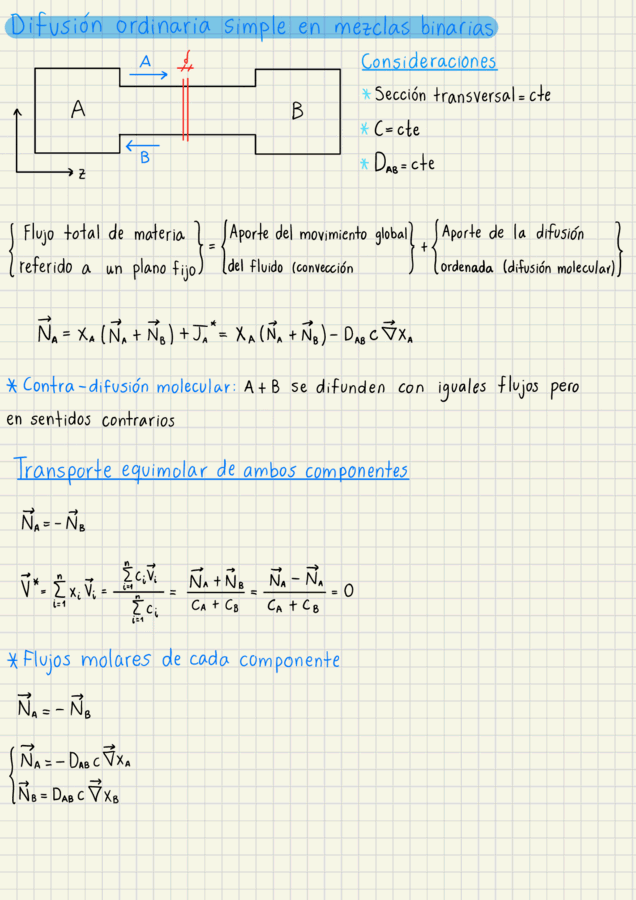 Difusión ordinaria simple en mezclas binarias
A
δ
A
B
B
z
Consideraciones
* Sección transversal = cte
* C = cte
* D_AB = cte
{Flujo total de materia referido a un plano fijo} = {Aporte del movimiento global del fluido (convección} + {Aporte de la difusión ordenada (difusión molecular)}
N⃗_A = x_A (N⃗_A + N⃗_B) + J⃗_A* = x_A (N⃗_A + N⃗_B) − D_AB c ∇⃗x_A
* Contra-difusión molecular: A + B se difunden con iguales flujos pero
en sentidos contrarios
Transporte equimolar de ambos componentes
N⃗_A = − N⃗_B
V⃗* = Σ_{i=1}^{n} x_i V⃗_i = (Σ_{i=1}^{n} c_i V⃗_i) / (Σ_{i=1}^{n} c_i) = (N⃗_A + N⃗_B) / (C_A + C_B) = (N⃗_A − N⃗_A) / (C_A + C_B) = 0
* Flujos molares de cada componente
N⃗_A = − N⃗_B
N⃗_A = − D_AB c ∇⃗x_A
N⃗_B = D_AB c ∇⃗x_B